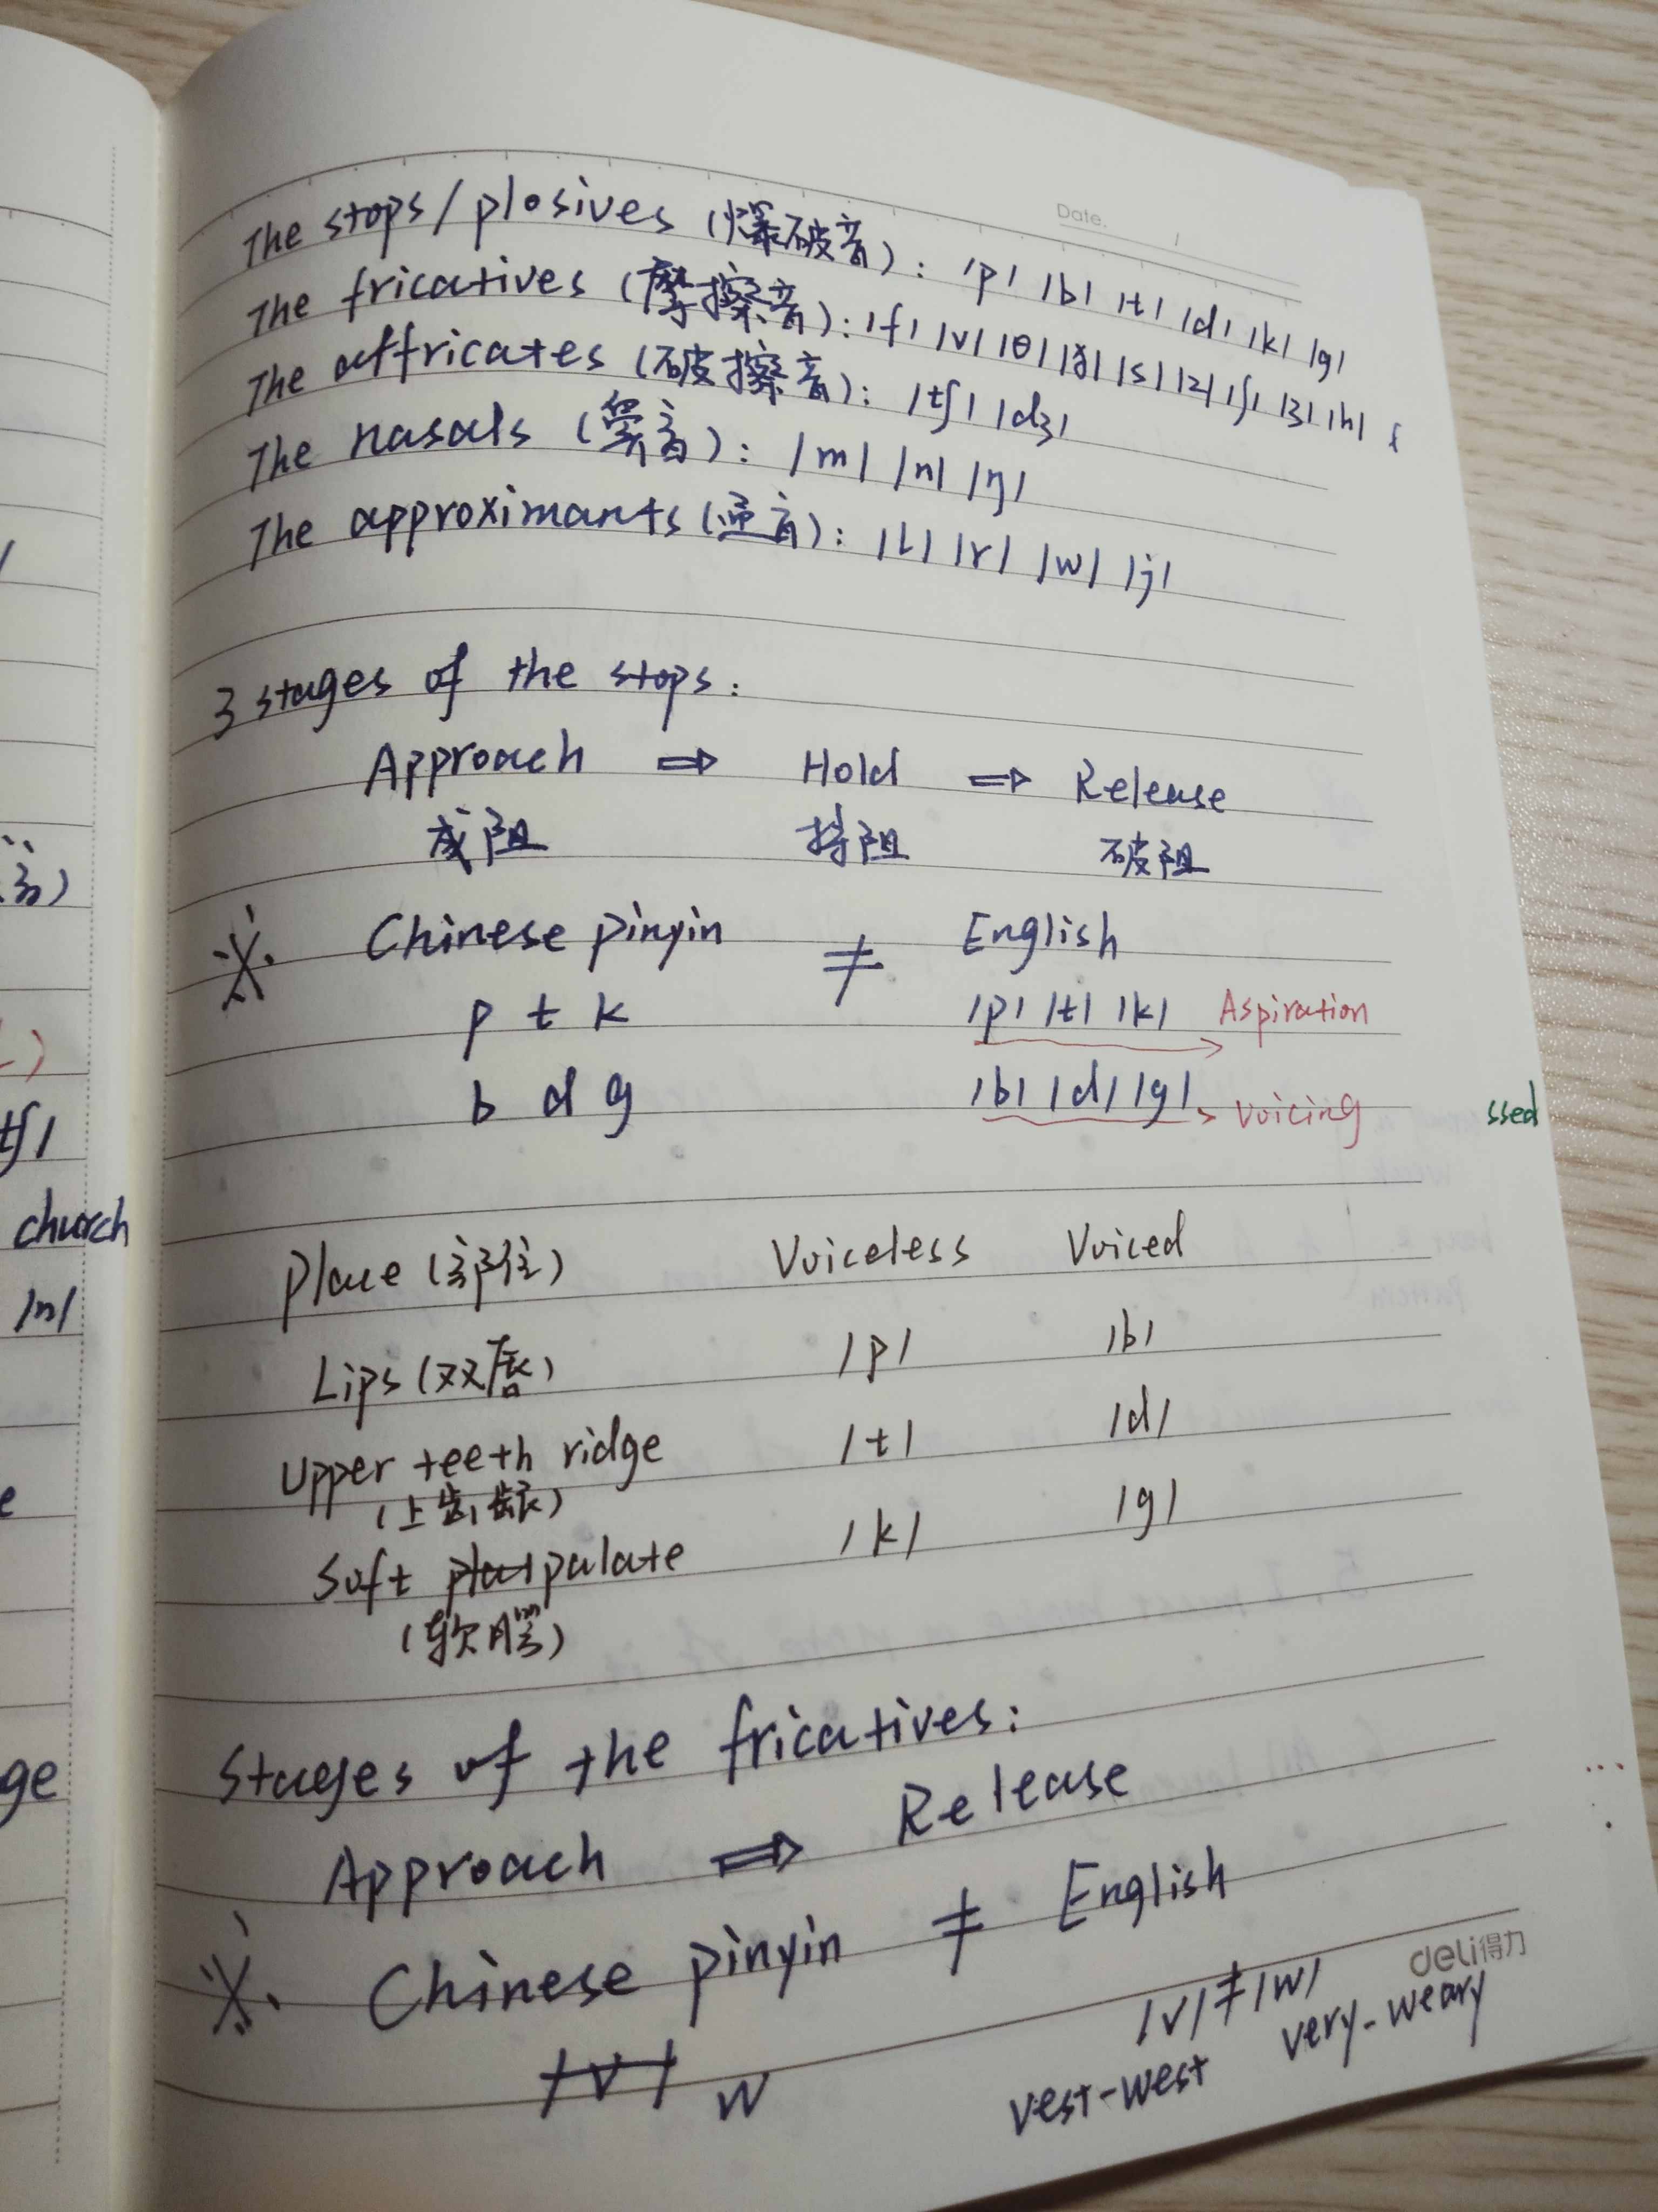 Date.
The stops/plosives (爆破音): /p/ /b/ /t/ /d/ /k/ /g/
The fricatives (摩擦音): /f/ /v/ /θ/ /ð/ /s/ /z/ /ʃ/ /ʒ/ /h/
The affricates (破擦音): /tʃ/ /dʒ/
The nasals (鼻音): /m/ /n/ /ŋ/
The approximants (通音): /l/ /r/ /w/ /j/
3 stages of the stops:
Approach ⇒ Hold ⇒ Release
成阻 持阻 破阻
※. Chinese pinyin ≠ English
p t k /p/ /t/ /k/ Aspiration
b d g /b/ /d/ /g/ → Voicing
ssed
tʃ/
church
/n/
ge
Place (部位) Voiceless Voiced
Lips (双唇) /p/ /b/
Upper teeth ridge /t/ /d/
(上齿龈)
Soft palate /k/ /g/
(软腭)
Stages of the fricatives:
Approach ⇒ Release
※. Chinese pinyin ≠ English
/v/ w
deli得力
/v/ ≠ /w/
vest-west very-weary